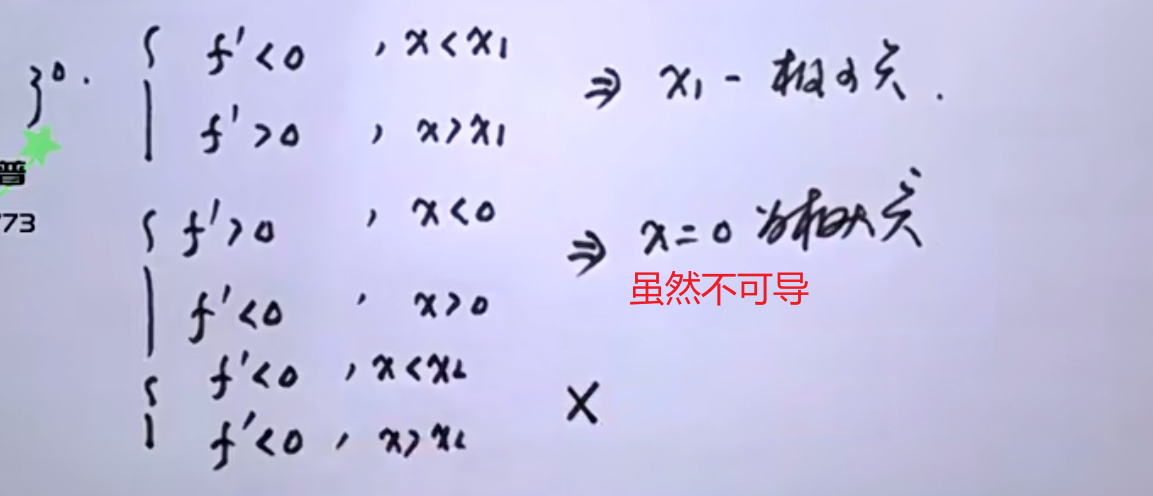 3°. { f' < 0 , x < x₁
f' > 0 , x > x₁ ⇒ x₁ - 极小点.
普
773
{ f' > 0 , x < 0
f' < 0 , x > 0 ⇒ x = 0 为极大点
虽然不可导
{ f' < 0 , x < x₂
f' < 0 , x > x₂ ×